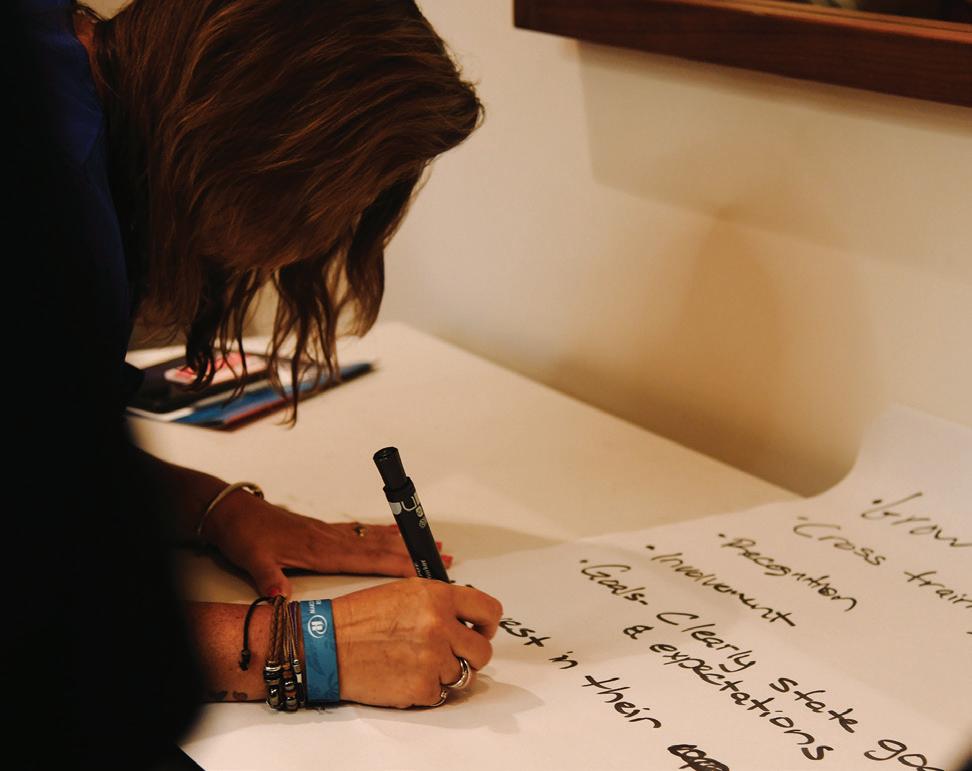 • Grow
• Cross train
• Recognition
• Involvement
• Goals- Clearly state goa
& expectations
est in their